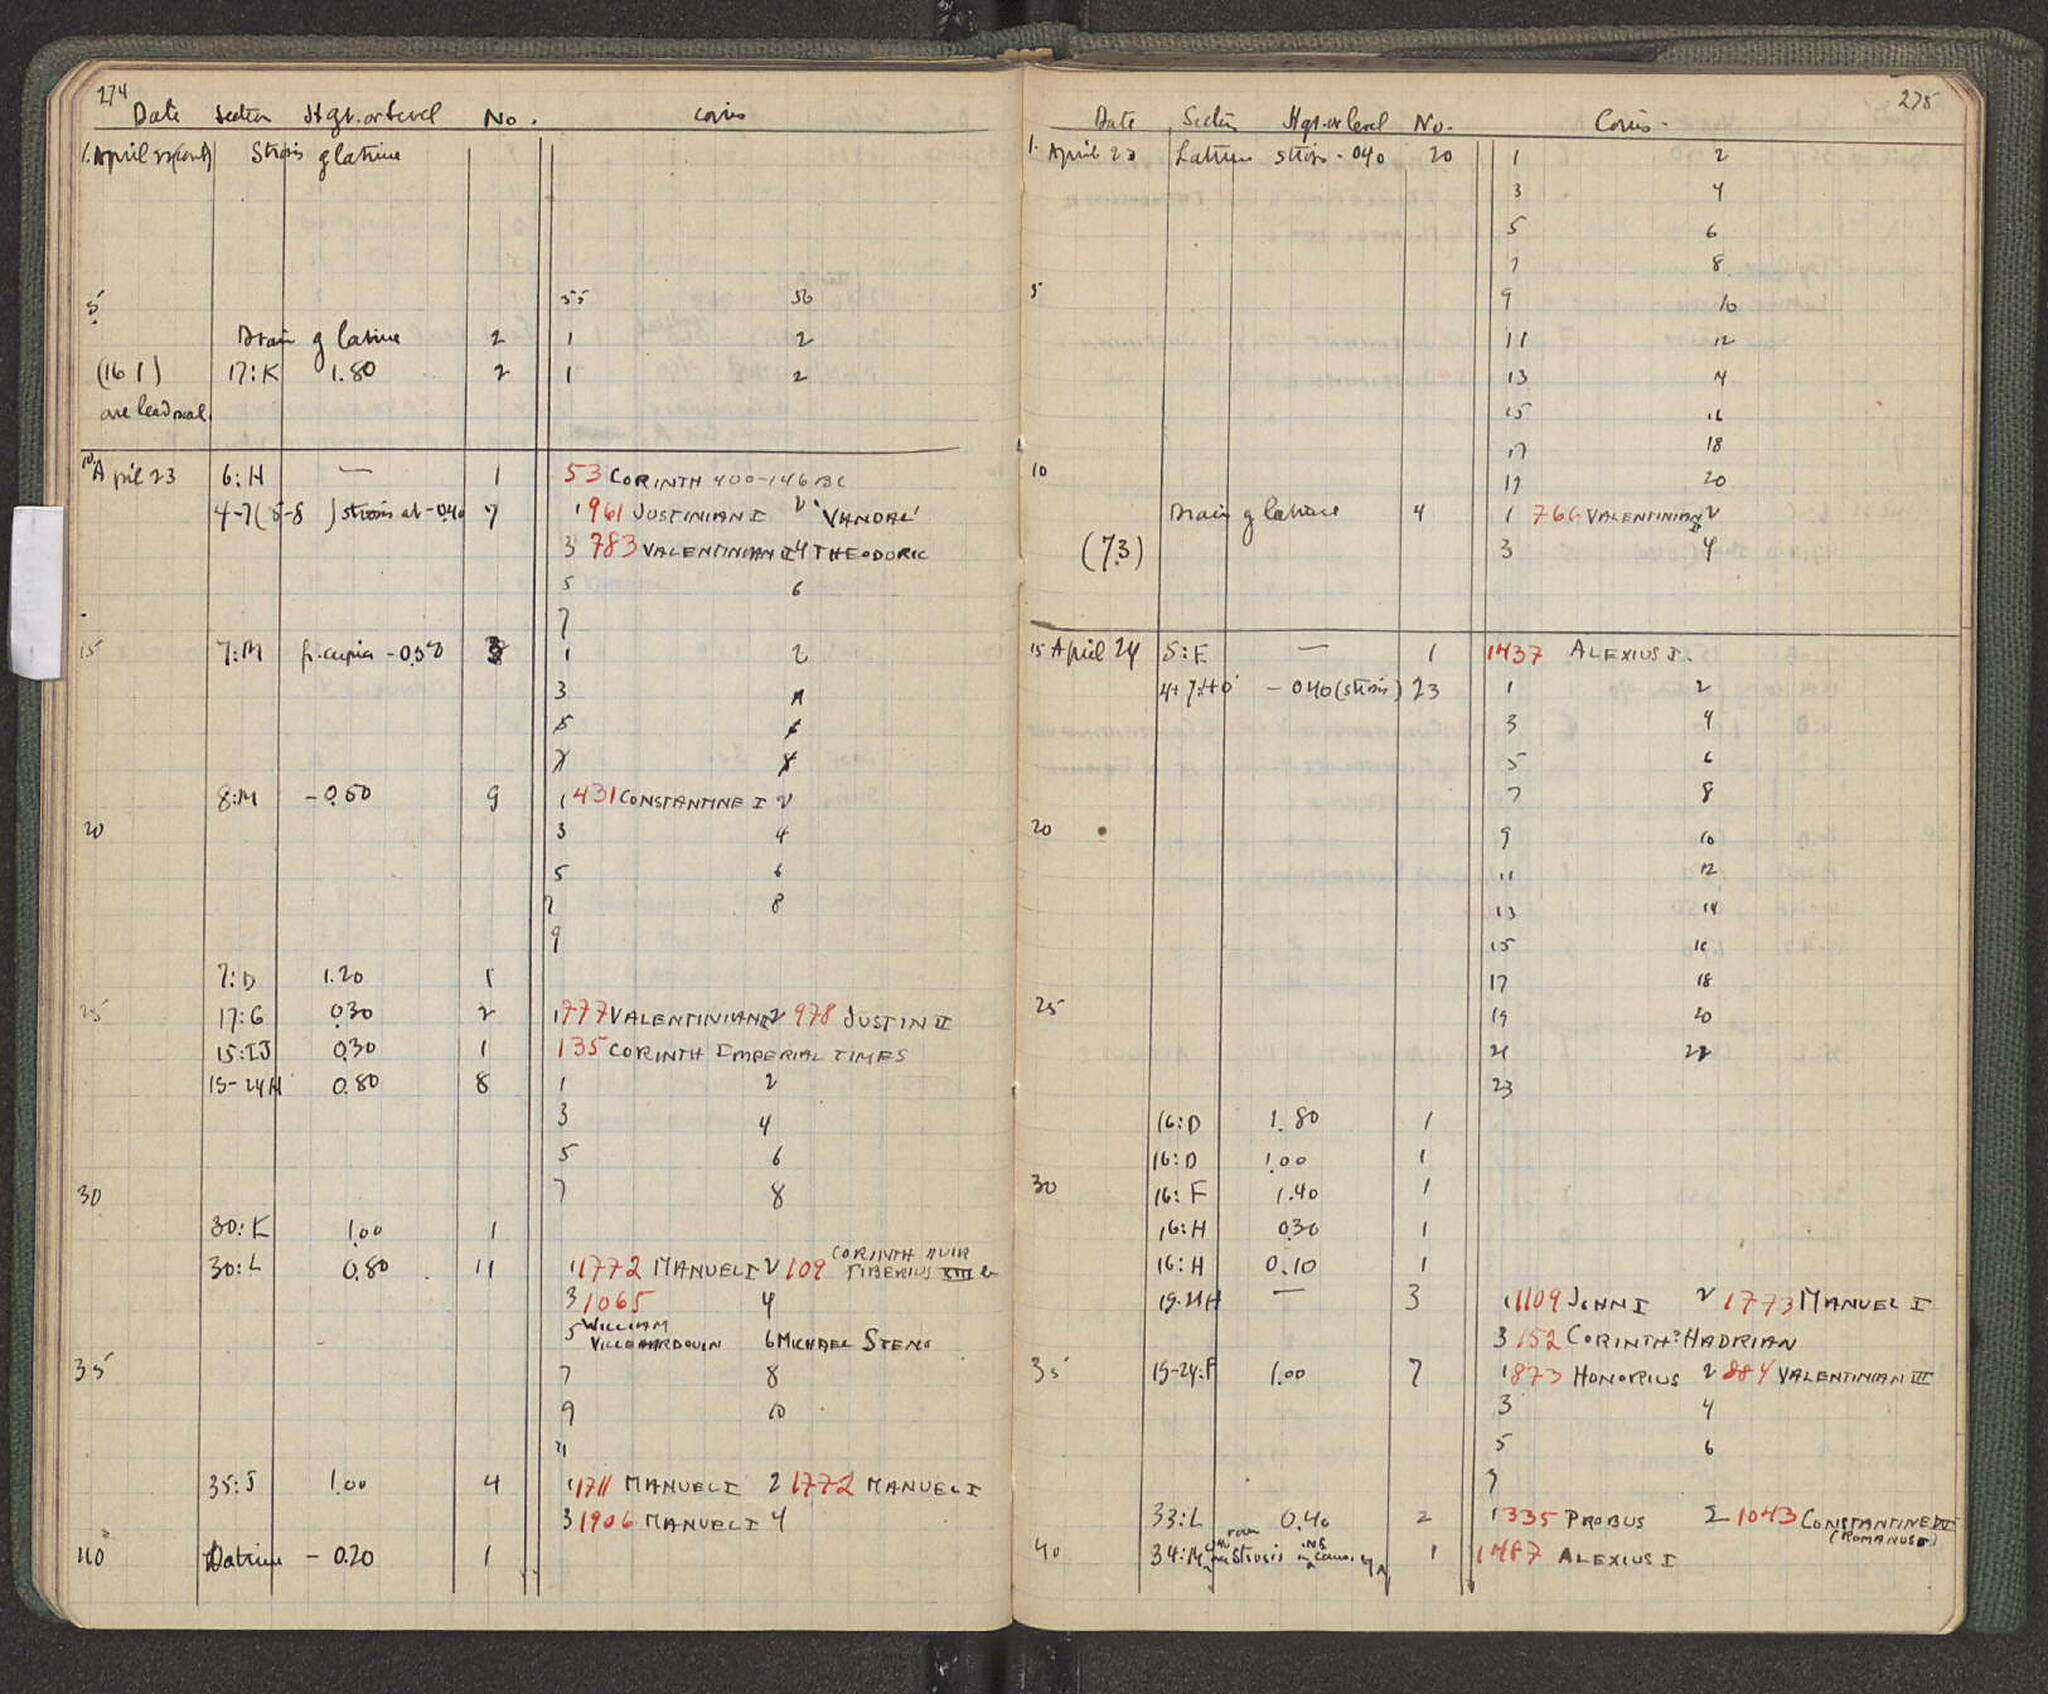 274
Date Section Hgt. or Level No. Coins
1. April 22 (cont) Strosis g latrine
5 55 56
Drain g latrine 2 1 2
(16 1) 17:K 1.80 2 1 2
are lead seal
10. April 23 6:H — 1 53 CORINTH 400-146 BC
4-7( 5-8 ) strosis at -0.40 7 1 961 JUSTINIAN I 2 'VANDAL'
3 783 VALENTINIAN II 4 THEODORIC
5 6
7
15 7:M -0.50 3 1 2
3 4
5 6
7 8
8:M -0.50 9 1 431 CONSTANTINE I 2
20 3 4
5 6
7 8
9
7:D 1.20 1
25 17:G 0.30 2 1 777 VALENTINIAN II 2 978 JUSTIN II
15:IJ 0.30 1 135 CORINTH IMPERIAL TIMES
15-24H 0.80 8 1 2
3 4
5 6
30 7 8
30:K 1.00 1
30:L 0.80 11 1 1772 MANUEL I 2 109 CORINTH IIVIR TIBERIUS XIII
3 1065 4
5 WILLIAM VILLEHARDOUIN 6 MICHAEL STENO
35 7 8
9 10
11
35:J 1.00 4 1 1711 MANUEL I 2 1772 MANUEL I
3 1906 MANUEL I 4
40 Latrine - 0.20 1
275
Date Section Hgt. or level No. Coins.
1. April 23 Latrine strosis - 040 20 1 2
3 4
5 6
7 8
5 9 10
11 12
13 14
15 16
17 18
10 19 20
Drain g latrine 4 1 766 VALENTINIAN II 2
(73) 3 4
15 April 24 5:E — 1 1437 ALEXIUS I.
4+7:H0 - 040 (strosis) 23 1 2
3 4
5 6
7 8
20 9 10
11 12
13 14
15 16
17 18
25 19 20
21 22
23
16:D 1.80 1
16:D 1.00 1
30 16:F 1.40 1
16:H 0.30 1
16:H 0.10 1
19-24H — 3 1 1109 JOHN I 2 1773 MANUEL I
3 152 CORINTH? HADRIAN
35 15-24:F 1.00 7 1 873 HONORIUS 2 884 VALENTINIAN III
3 4
5 6
7
33:L 0.40 2 1 335 PROBUS 2 1043 CONSTANTINE VII (ROMANUS I)
40 34:M strosis 1 1487 ALEXIUS I